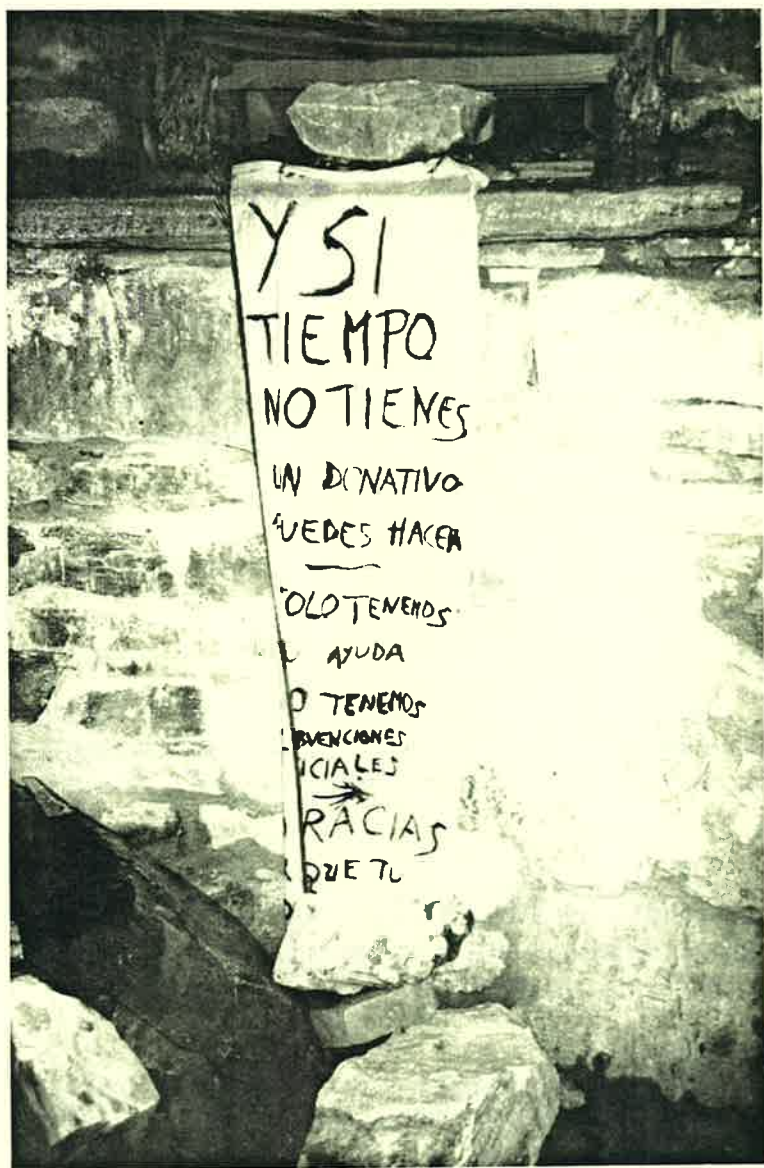 Y SI
TIEMPO
NO TIENES
UN DONATIVO
PUEDES HACER
OLO TENEMOS
AYUDA
O TENEMOS
BVENCIONES
ICIALES
RACIAS
QUE TU